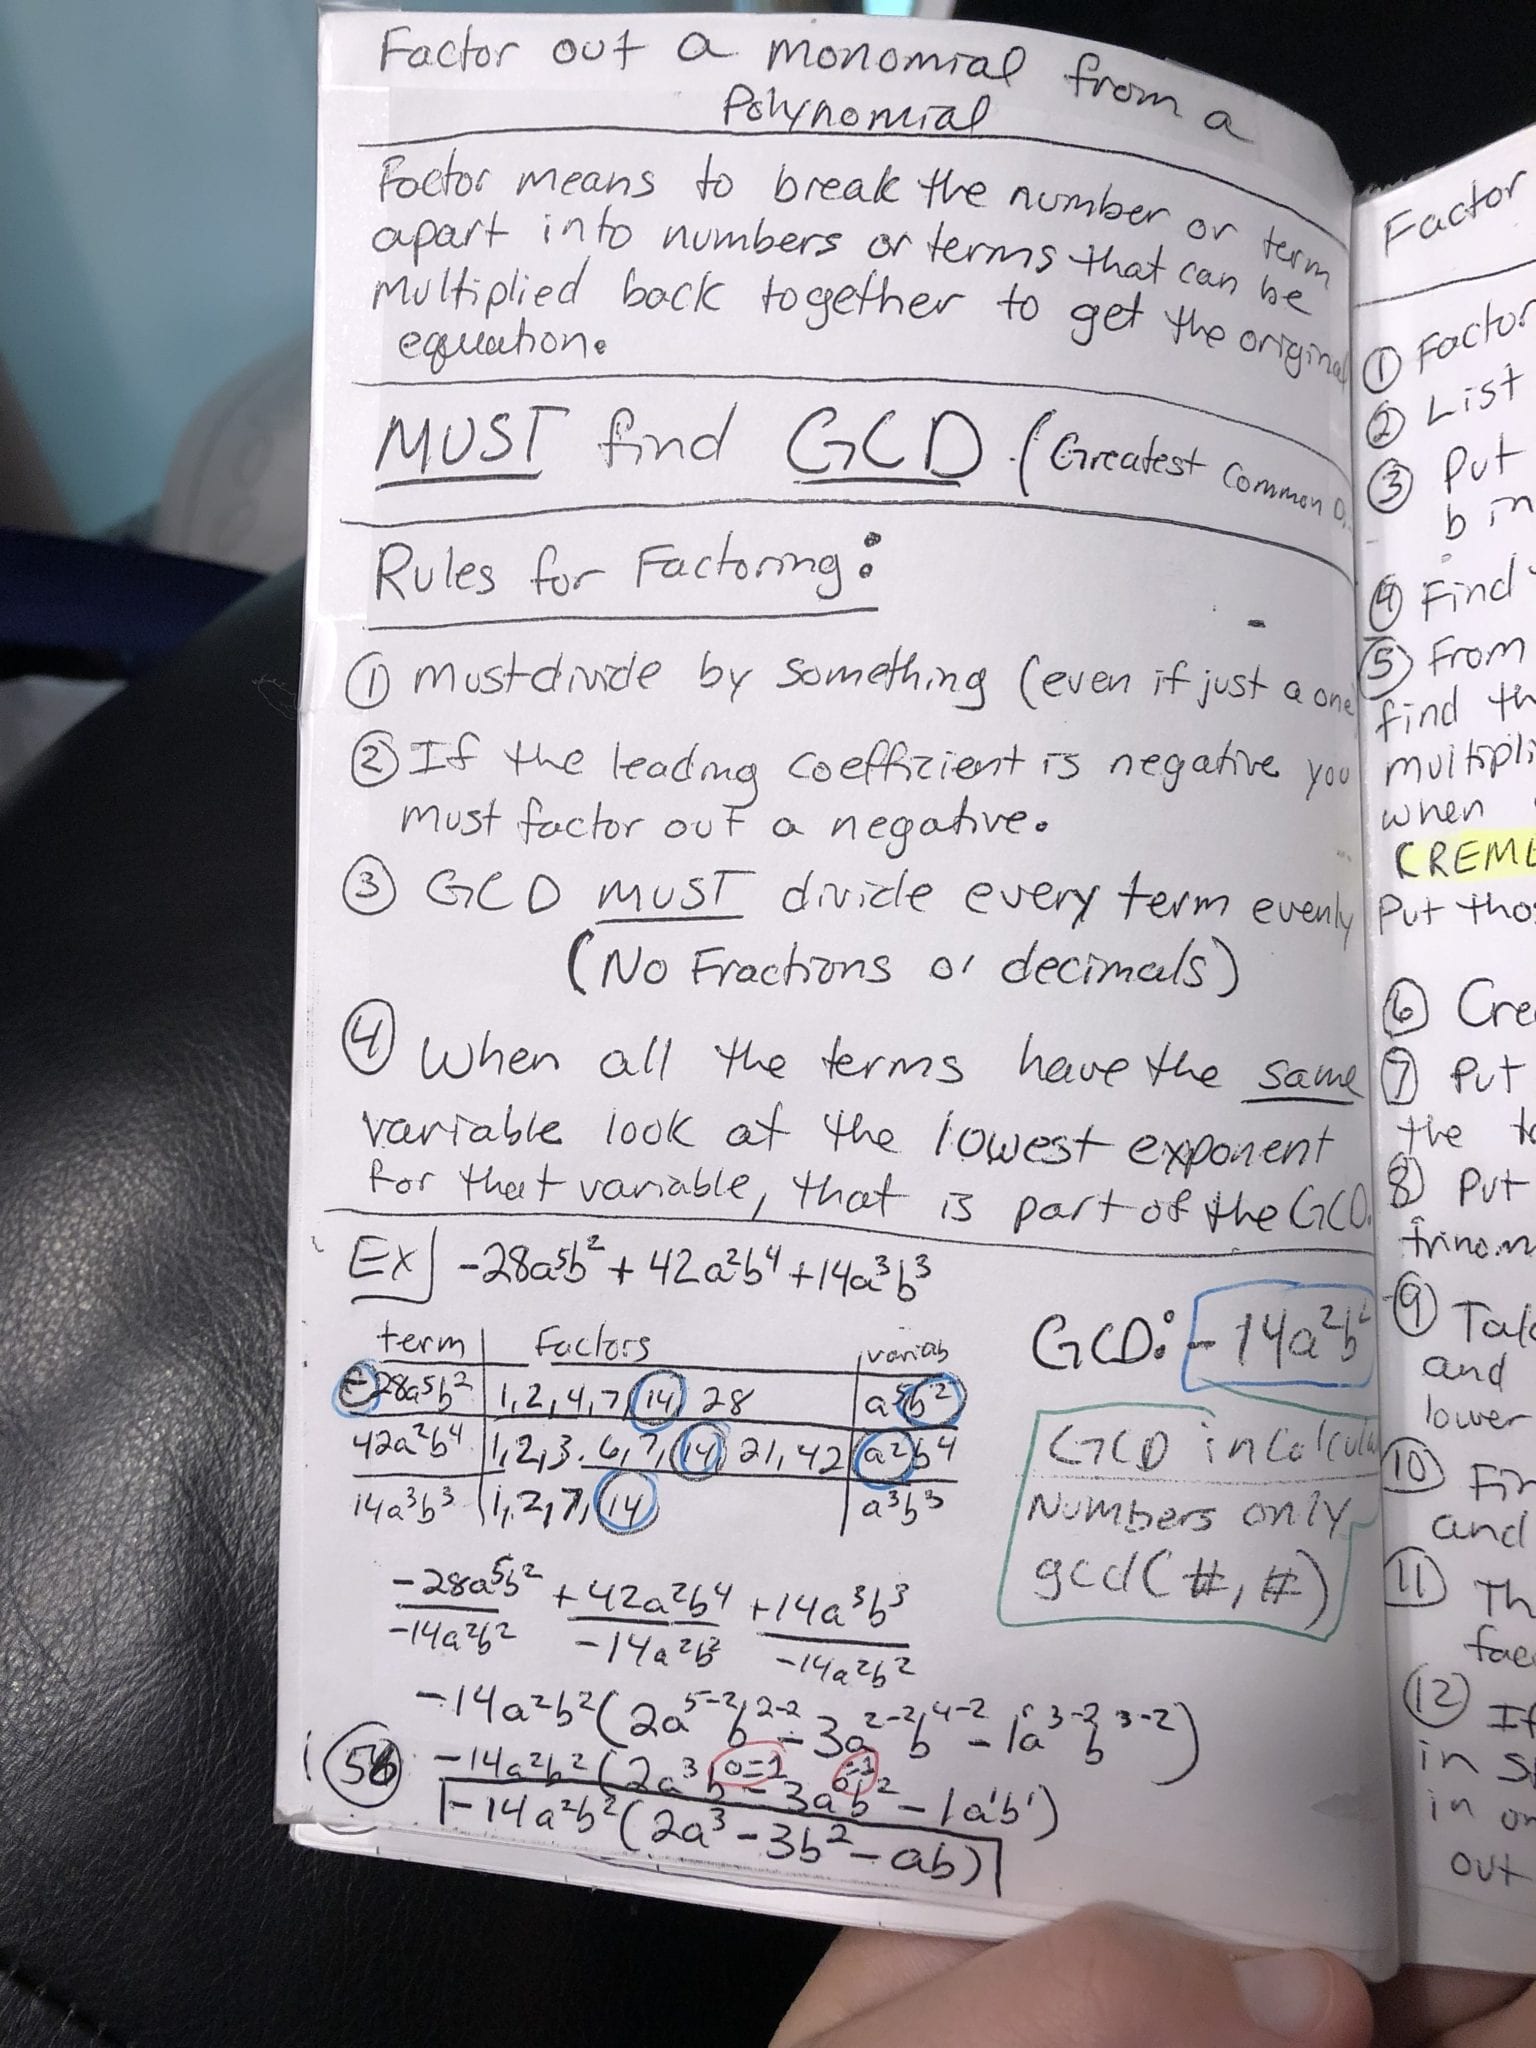 Factor out a monomial from a
Polynomial
Factor means to break the number or term
apart into numbers or terms that can be
multiplied back together to get the original
equation.
MUST find GCD (Greatest Common D
Rules for Factoring:
① must divide by something (even if just a one
② If the leading coefficient is negative you
must factor out a negative.
③ GCD MUST divide every term evenly
(No Fractions or decimals)
④ When all the terms have the same
variable look at the lowest exponent
for that variable, that is part of the GCD.
Ex] -28a⁵b² + 42a²b⁴ + 14a³b³
GCD: -14a²b²
term | Factors | variab
-28a⁵b² | 1, 2, 4, 7, 14 28 | a⁵b²
42a²b⁴ | 1, 2, 3, 6, 7, 14 21, 42 | a²b⁴
14a³b³ | 1, 2, 7, 14 | a³b³
GCD in Calcula
Numbers only
gcd(#, #)
-28a⁵b² + 42a²b⁴ + 14a³b³
-14a²b² -14a²b² -14a²b²
-14a²b²(2a⁵⁻²b²⁻² - 3a²⁻²b⁴⁻² - 1a³⁻²b³⁻²)
-14a²b²(2a³b⁰⁼¹ - 3a⁰⁼¹b² - 1a¹b¹)
-14a²b²(2a³ - 3b² - ab)
Factor
① Factor
② List
③ Put
b in
④ Find
⑤ From
find th
multipli
when
(REME
Put thos
⑥ Cre
⑦ Put
the to
⑧ Put
trinom
⑨ Tak
and
lower
⑩ Fir
and
⑪ Th
fac
⑫ If
in s
in or
out